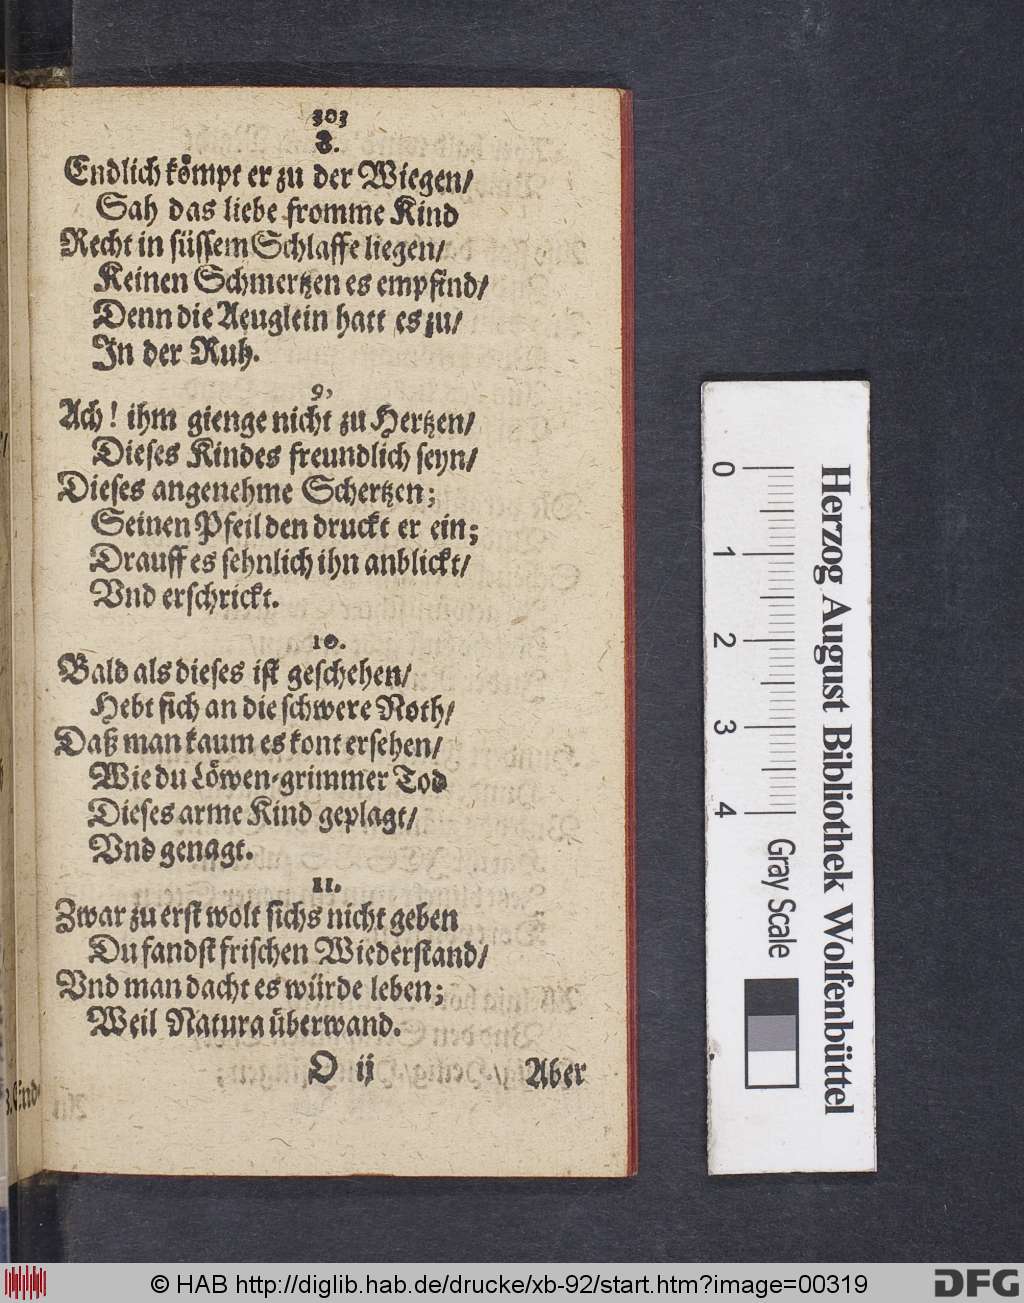 303
8.
Endlich kömpt er zu der Wiegen/
Sah das liebe fromme Kind
Recht in süssem Schlaffe liegen/
Keinen Schmertzen es empfind/
Denn die Aeuglein hatt es zu/
In der Ruh.
9.
Ach! ihm gienge nicht zu Hertzen/
Dieses Kindes freundlich seyn/
Dieses angenehme Schertzen;
Seinen Pfeil den druckt er ein;
Drauff es sehnlich ihn anblickt/
Vnd erschrickt.
10.
Bald als dieses ist geschehen/
Hebt sich an die schwere Noth/
Daß man kaum es kont ersehen/
Wie du Löwen-grimmer Tod
Dieses arme Kind geplagt/
Vnd genagt.
11.
Zwar zu erst wolt sichs nicht geben
Du fandst frischen Wiederstand/
Vnd man dacht es würde leben;
Weil Natura überwand.
O ij
Aber
0 1 2 3 4
Gray Scale
Herzog August Bibliothek Wolfenbüttel
© HAB http://diglib.hab.de/drucke/xb-92/start.htm?image=00319
DFG